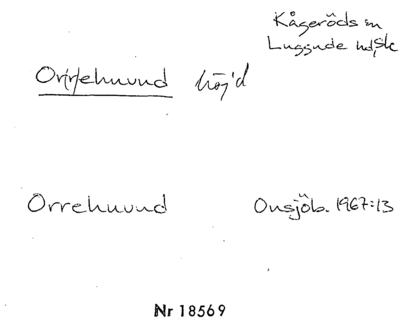 Kågeröds sn
Luggude hd, Sk
Or(r)ehuvud höjd
Orrehuvud Onsjöb. 1967:13
Nr 18569